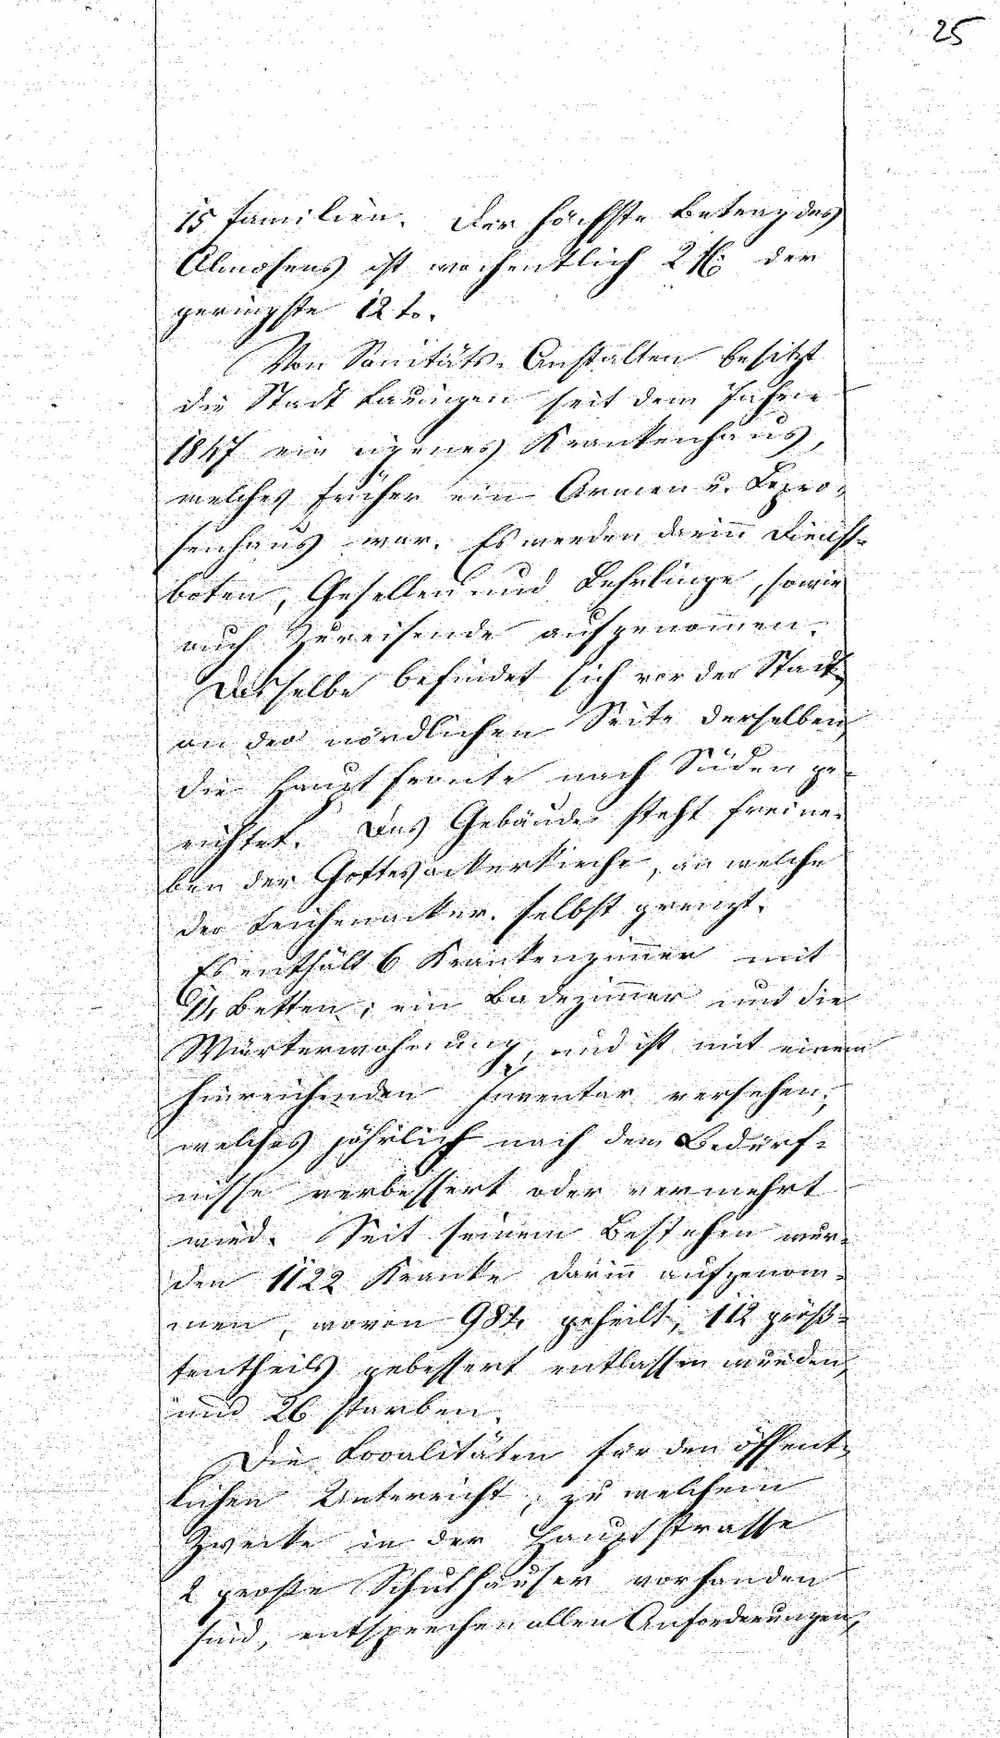 25
15 Familien. Der höchste Betrag des
Almosens ist wochentlich 2 fl: der
geringste 12 k.
Von Sanitäts-Anstalten besitzt
die Stadt Lauingen seit dem Jahre
1847 ein eigenes Krankenhaus,
welches früher ein Armen u. Lepro-
senhaus war. Es werden darin̅ Dienst-
boten, Gesellen und Lehrlinge, sowie
auch Zureisende aufgenom̅en.
Dasselbe befindet sich vor der Stadt
an der nördlichen Seite derselben,
die Hauptfronte nach Süden ge-
richtet. Das Gebäude steht frei ne-
ben der Gottesackerkirche, an welche
der Leichenacker selbst grenzt.
Es enthält 6 Krankenzim̅er mit
Betten, ein Badezim̅er und die
Wärterwohnung, und ist mit einem
hinreichenden Inventar versehen,
welches jährlich nach dem Bedürf-
nisse verbessert oder vermehrt
wird. Seit seinem Bestehen wur-
den 1122 Kranke darin̅ aufgenom-
men, wovon 984 geheilt, 112 größ-
tentheils gebessert entlassen wurden,
und 26 starben.
Die Localitäten für den öffent-
lichen Unterricht, zu welchem
Zwecke in der Hauptstrasse
2 große Schulhäuser vorhanden
sind, entsprechen allen Anforderungen,